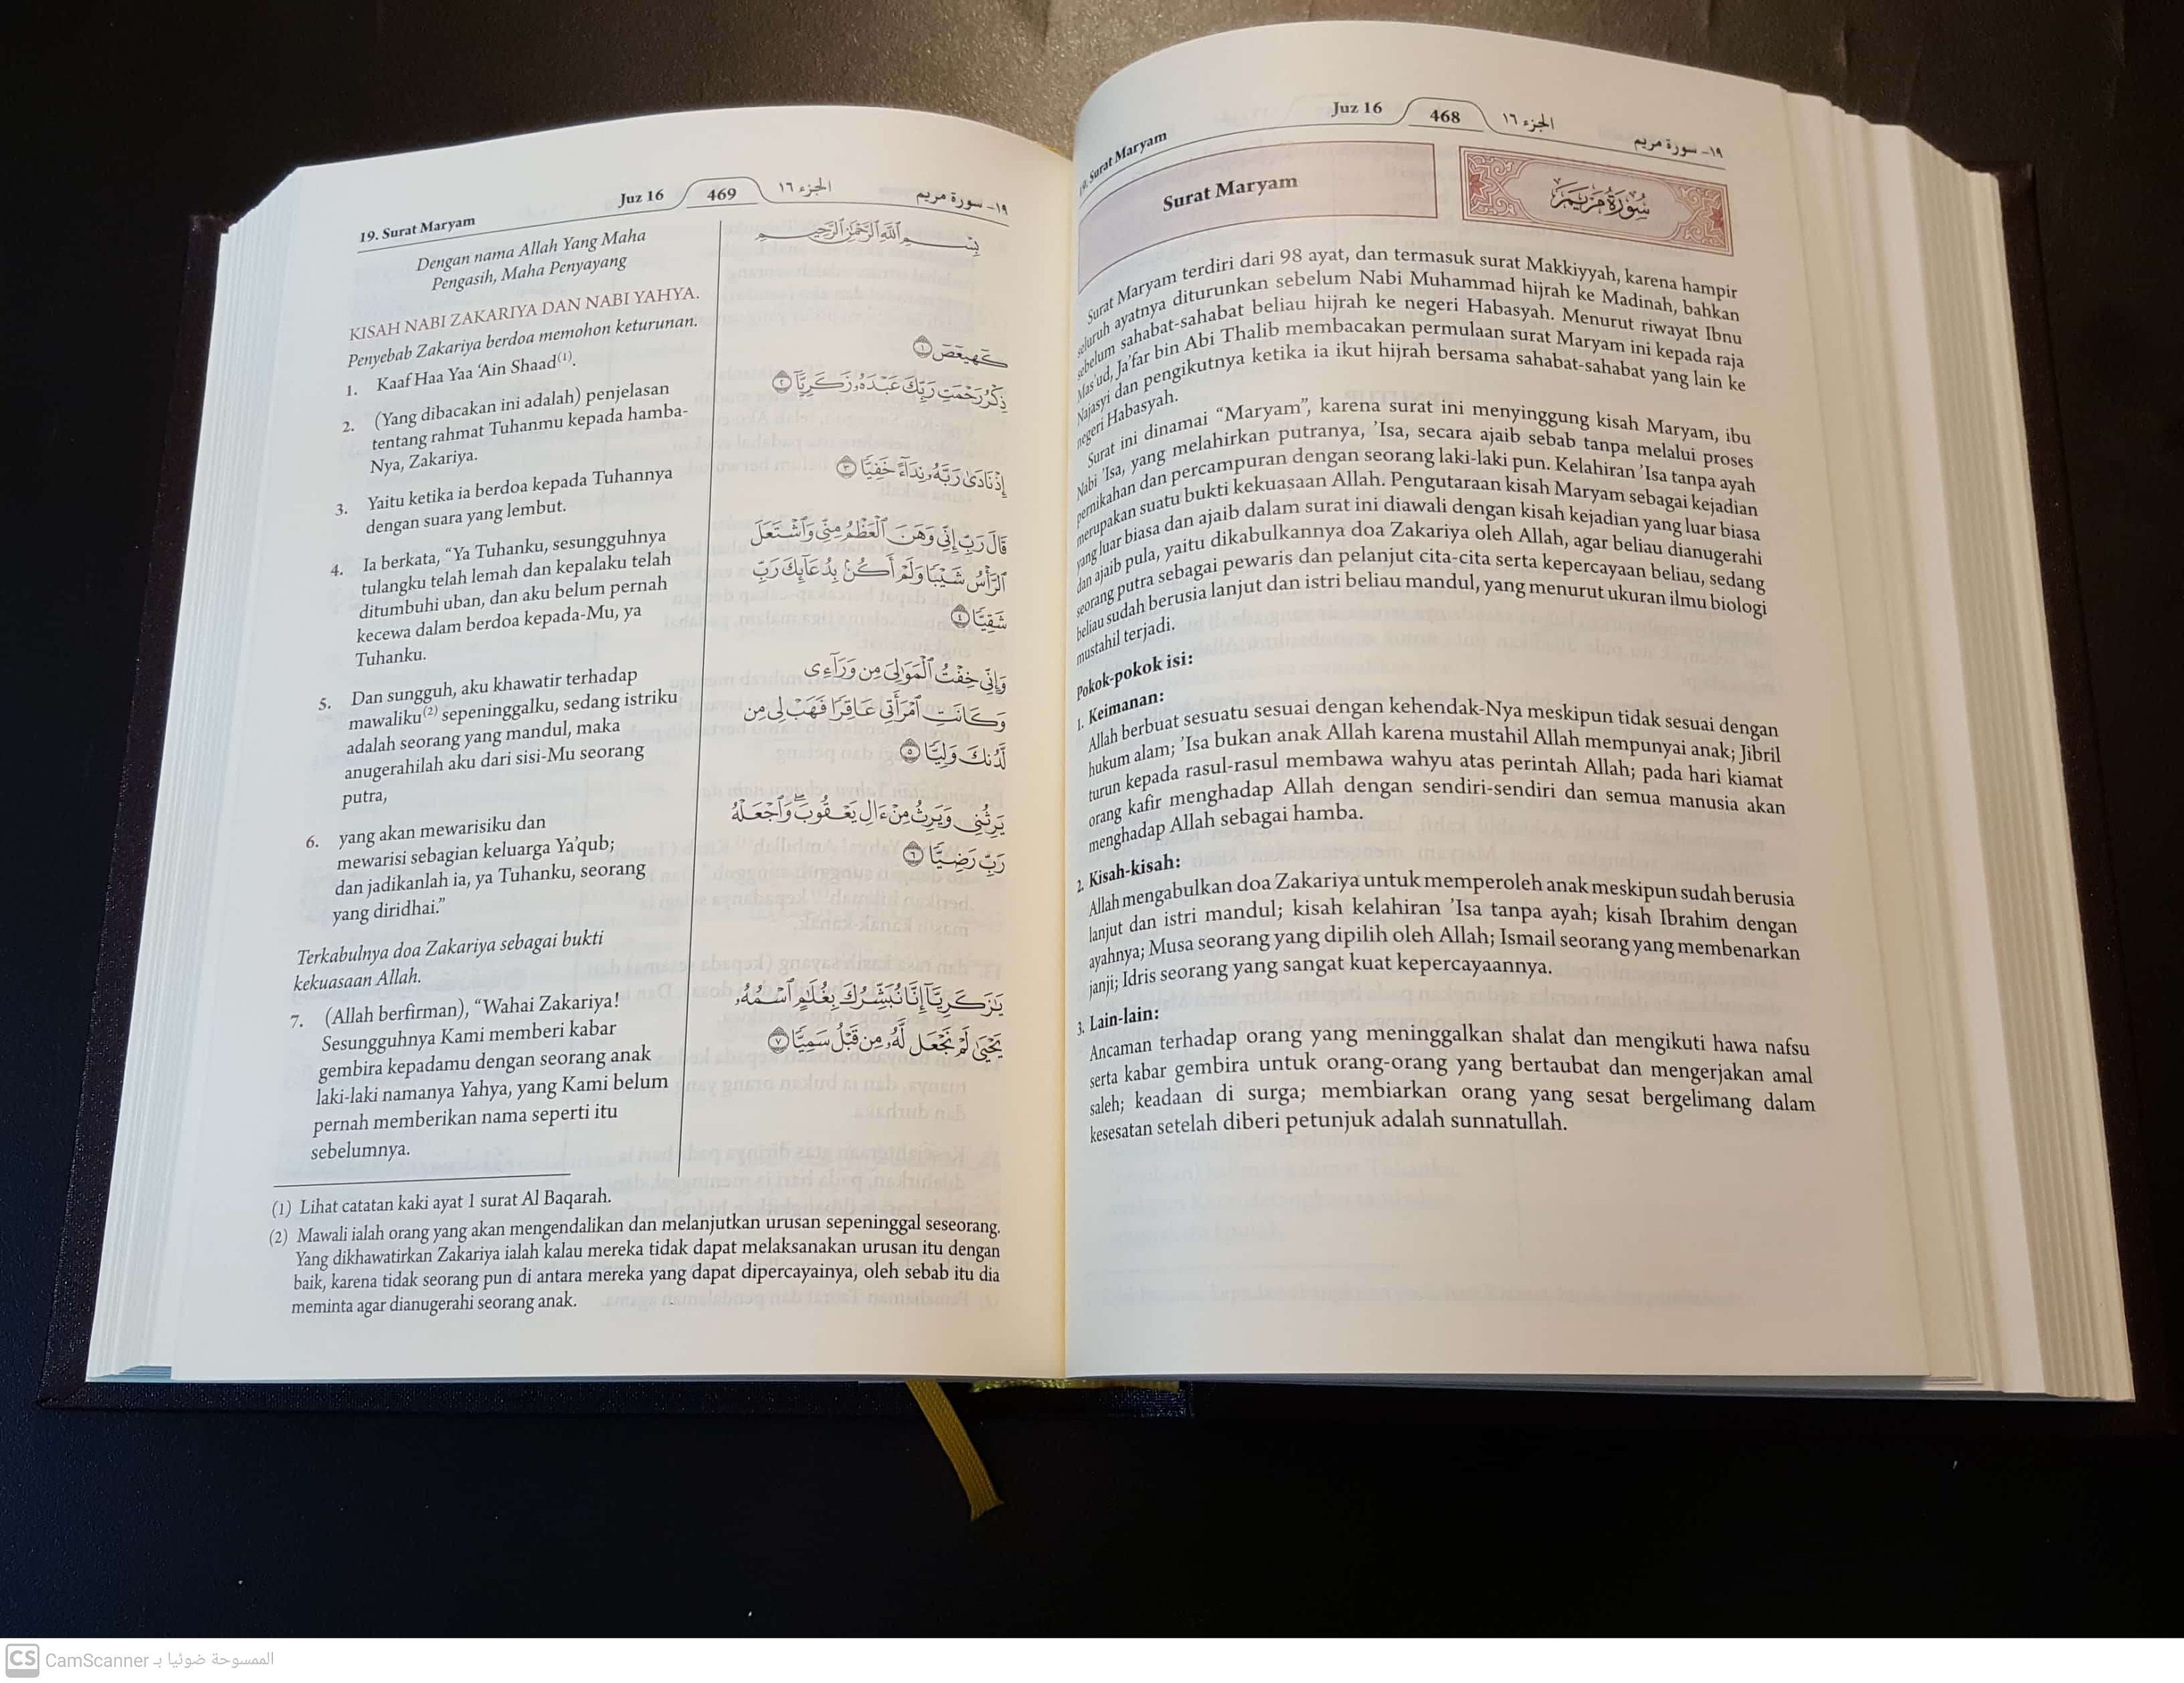 19. Surat Maryam
Juz 16
468
الجزء ١٦
١٩- سورة مريم
Surat Maryam
سُورَةُ مَرْيَمَ
Surat Maryam terdiri dari 98 ayat, dan termasuk surat Makkiyyah, karena hampir
seluruh ayatnya diturunkan sebelum Nabi Muhammad hijrah ke Madinah, bahkan
sebelum sahabat-sahabat beliau hijrah ke negeri Habasyah. Menurut riwayat Ibnu
Mas'ud, Ja'far bin Abi Thalib membacakan permulaan surat Maryam ini kepada raja
Najasyi dan pengikutnya ketika ia ikut hijrah bersama sahabat-sahabat yang lain ke
negeri Habasyah.
Surat ini dinamai “Maryam”, karena surat ini menyinggung kisah Maryam, ibu
Nabi 'Isa, yang melahirkan putranya, 'Isa, secara ajaib sebab tanpa melalui proses
pernikahan dan percampuran dengan seorang laki-laki pun. Kelahiran 'Isa tanpa ayah
merupakan suatu bukti kekuasaan Allah. Pengutaraan kisah Maryam sebagai kejadian
yang luar biasa dan ajaib dalam surat ini diawali dengan kisah kejadian yang luar biasa
dan ajaib pula, yaitu dikabulkannya doa Zakariya oleh Allah, agar beliau dianugerahi
seorang putra sebagai pewaris dan pelanjut cita-cita serta kepercayaan beliau, sedang
beliau sudah berusia lanjut dan istri beliau mandul, yang menurut ukuran ilmu biologi
mustahil terjadi.
Pokok-pokok isi:
1. Keimanan:
Allah berbuat sesuatu sesuai dengan kehendak-Nya meskipun tidak sesuai dengan
hukum alam; 'Isa bukan anak Allah karena mustahil Allah mempunyai anak; Jibril
turun kepada rasul-rasul membawa wahyu atas perintah Allah; pada hari kiamat
orang kafir menghadap Allah dengan sendiri-sendiri dan semua manusia akan
menghadap Allah sebagai hamba.
2. Kisah-kisah:
Allah mengabulkan doa Zakariya untuk memperoleh anak meskipun sudah berusia
lanjut dan istri mandul; kisah kelahiran 'Isa tanpa ayah; kisah Ibrahim dengan
ayahnya; Musa seorang yang dipilih oleh Allah; Ismail seorang yang membenarkan
janji; Idris seorang yang sangat kuat kepercayaannya.
3. Lain-lain:
Ancaman terhadap orang yang meninggalkan shalat dan mengikuti hawa nafsu
serta kabar gembira untuk orang-orang yang bertaubat dan mengerjakan amal
saleh; keadaan di surga; membiarkan orang yang sesat bergelimang dalam
kesesatan setelah diberi petunjuk adalah sunnatullah.
19. Surat Maryam
Juz 16
469
الجزء ١٦
١٩- سورة مريم
Dengan nama Allah Yang Maha
Pengasih, Maha Penyayang
KISAH NABI ZAKARIYA DAN NABI YAHYA.
Penyebab Zakariya berdoa memohon keturunan.
1. Kaaf Haa Yaa ‘Ain Shaad(1).
2. (Yang dibacakan ini adalah) penjelasan
tentang rahmat Tuhanmu kepada hamba-
Nya, Zakariya.
3. Yaitu ketika ia berdoa kepada Tuhannya
dengan suara yang lembut.
4. Ia berkata, “Ya Tuhanku, sesungguhnya
tulangku telah lemah dan kepalaku telah
ditumbuhi uban, dan aku belum pernah
kecewa dalam berdoa kepada-Mu, ya
Tuhanku.
5. Dan sungguh, aku khawatir terhadap
mawaliku(2) sepeninggalku, sedang istriku
adalah seorang yang mandul, maka
anugerahilah aku dari sisi-Mu seorang
putra,
6. yang akan mewarisiku dan
mewarisi sebagian keluarga Ya'qub;
dan jadikanlah ia, ya Tuhanku, seorang
yang diridhai.”
Terkabulnya doa Zakariya sebagai bukti
kekuasaan Allah.
7. (Allah berfirman), “Wahai Zakariya!
Sesungguhnya Kami memberi kabar
gembira kepadamu dengan seorang anak
laki-laki namanya Yahya, yang Kami belum
pernah memberikan nama seperti itu
sebelumnya.
بِسْمِ ٱللَّهِ ٱلرَّحْمَٰنِ ٱلرَّحِيمِ
كٓهيعٓصٓ ١
ذِكْرُ رَحْمَتِ رَبِّكَ عَبْدَهُۥ زَكَرِيَّآ ٢
إِذْ نَادَىٰ رَبَّهُۥ نِدَآءً خَفِيًّا ٣
قَالَ رَبِّ إِنِّى وَهَنَ ٱلْعَظْمُ مِنِّى وَٱشْتَعَلَ
ٱلرَّأْسُ شَيْبًا وَلَمْ أَكُنۢ بِدُعَآئِكَ رَبِّ
شَقِيًّا ٤
وَإِنِّى خِفْتُ ٱلْمَوَٰلِىَ مِن وَرَآءِى
وَكَانَتِ ٱمْرَأَتِى عَاقِرًا فَهَبْ لِى مِن
لَّدُنكَ وَلِيًّا ٥
يَرِثُنِى وَيَرِثُ مِنْ ءَالِ يَعْقُوبَ ۖ وَٱجْعَلْهُ
رَبِّ رَضِيًّا ٦
يَٰزَكَرِيَّآ إِنَّا نُبَشِّرُكَ بِغُلَٰمٍ ٱسْمُهُۥ
يَحْيَىٰ لَمْ نَجْعَل لَّهُۥ مِن قَبْلُ سَمِيًّا ٧
(1) Lihat catatan kaki ayat 1 surat Al Baqarah.
(2) Mawali ialah orang yang akan mengendalikan dan melanjutkan urusan sepeninggal seseorang.
Yang dikhawatirkan Zakariya ialah kalau mereka tidak dapat melaksanakan urusan itu dengan
baik, karena tidak seorang pun di antara mereka yang dapat dipercayainya, oleh sebab itu dia
meminta agar dianugerahi seorang anak.
CS CamScanner الممسوحة ضوئيا بـ